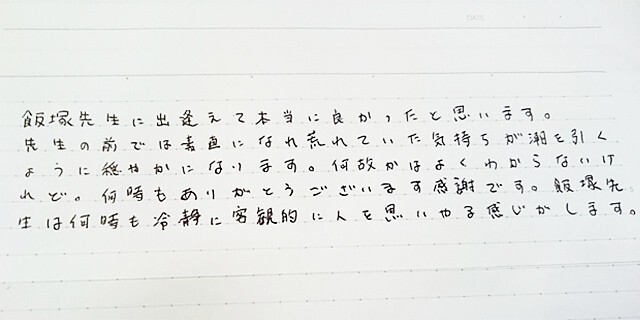 飯塚先生に出逢えて本当に良かったと思います。
先生の前では素直になれ荒れていた気持ちが潮を引く
ように穏やかになります。何故かはよくわからないけ
れど。何時もありがとうございます感謝です。飯塚先
生は何時も冷静に客観的に人を思いやる感じがします。